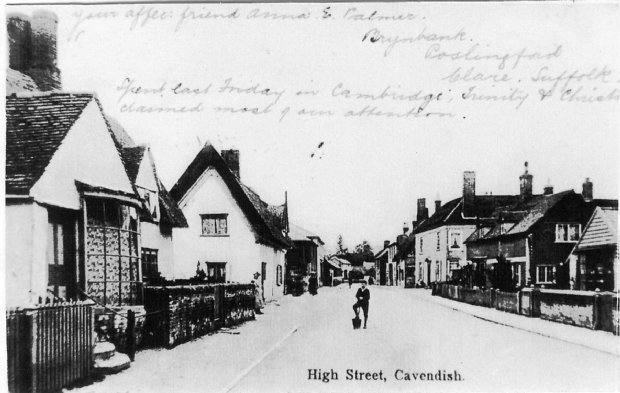 your affec: friend Anna E. Palmer.
Brynbank.
Poslingford
Clare. Suffolk.
Spent last Friday in Cambridge, Trinity & Christs
claimed most of our attention.
High Street, Cavendish.